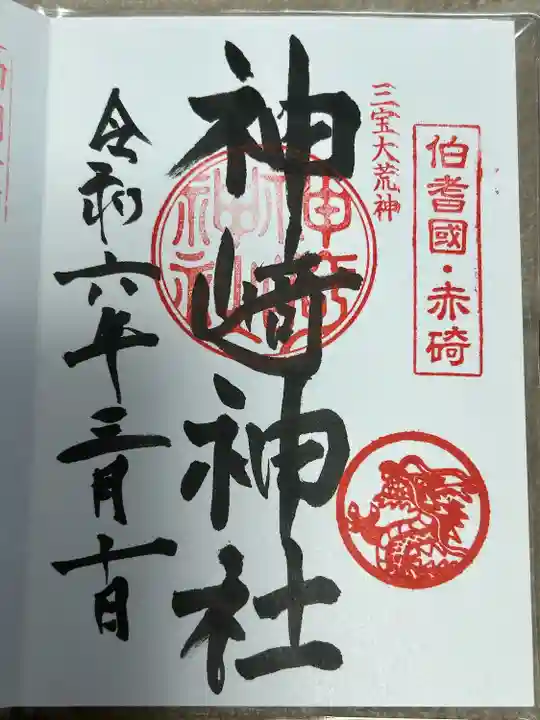 伯耆國・赤碕
三宝大荒神
神﨑神社
令和六年三月十日